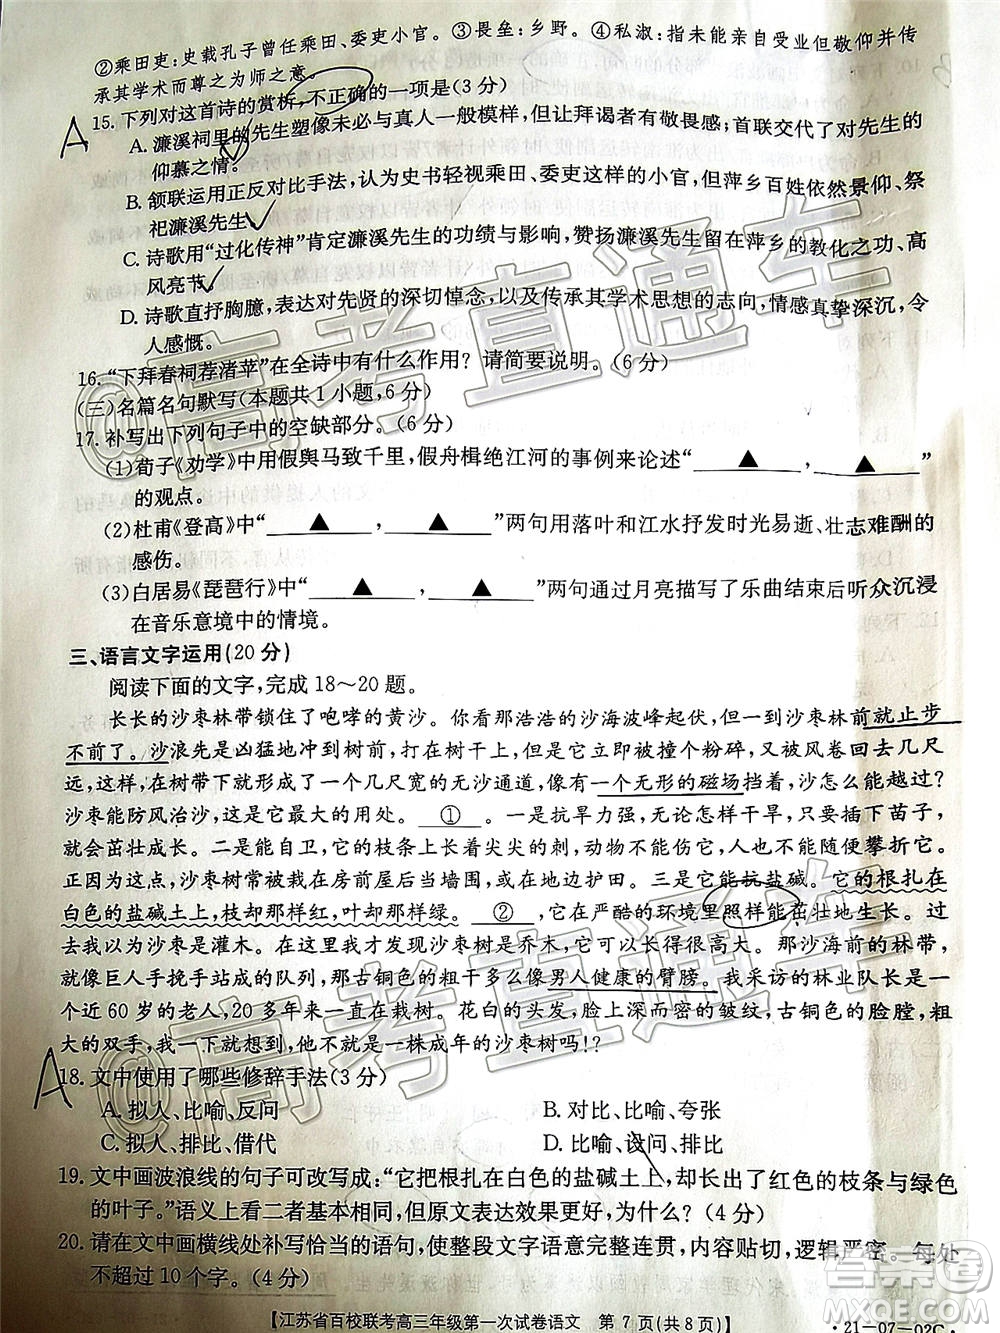 ②乘田吏:史载孔子曾任乘田、委吏小官。③畏垒:乡野。④私淑:指未能亲自受业但敬仰并传
承其学术而尊之为师之意。
15. 下列对这首诗的赏析,不正确的一项是(3 分)
A
A. 濂溪祠里的先生塑像未必与真人一般模样,但让拜谒者有敬畏感;首联交代了对先生的
仰慕之情。
B. 颔联运用正反对比手法,认为史书轻视乘田、委吏这样的小官,但萍乡百姓依然景仰、祭
祀濂溪先生。
C. 诗歌用“过化传神”肯定濂溪先生的功绩与影响,赞扬濂溪先生留在萍乡的教化之功、高
风亮节。
D. 诗歌直抒胸臆,表达对先贤的深切悼念,以及传承其学术思想的志向,情感真挚深沉,令
人感慨。
16. “下拜春祠荐渚苹”在全诗中有什么作用? 请简要说明。(6 分)
(三)名篇名句默写(本题共 1 小题,6 分)
17. 补写出下列句子中的空缺部分。(6 分)
(1)荀子《劝学》中用假舆马致千里,假舟楫绝江河的事例来论述“ ▲ , ▲ ”
的观点。
(2)杜甫《登高》中“ ▲ , ▲ ”两句用落叶和江水抒发时光易逝、壮志难酬的
感伤。
(3)白居易《琵琶行》中“ ▲ , ▲ ”两句通过月亮描写了乐曲结束后听众沉浸
在音乐意境中的情境。
三、语言文字运用(20 分)
阅读下面的文字,完成 18～20 题。
长长的沙枣林带锁住了咆哮的黄沙。你看那浩浩的沙海波峰起伏,但一到沙枣林前就止步
不前了。沙浪先是凶猛地冲到树前,打在树干上,但是它立即被撞个粉碎,又被风卷回去几尺
远,这样,在树带下就形成了一个几尺宽的无沙通道,像有一个无形的磁场挡着,沙怎么能越过?
沙枣能防风治沙,这是它最大的用处。 ① ,它的根系特别发达,无论怎样干旱,只要插下苗子,
就会茁壮成长。二是能自卫,它的枝条上长着尖尖的刺,动物不能伤它,人也不能随便攀折它。
正因为这点,沙枣树常被栽在房前屋后当墙围,栽在地边护田。三是它能抗盐碱。它的根扎在
白色的盐碱土上,枝却那样红,叶却那样绿。 ② ,它在严酷的环境里照样能茁壮地生长。过
去我以为沙枣是灌木。在这里我才发现沙枣树是乔木,它可以长得很高大。那沙海前的林带,
就像巨人手挽手站成的队列,那古铜色的粗干多么像男人健康的臂膀。我采访的林业队长是一
个近 60 岁的老人,20 多年来一直在栽树。花白的头发,脸上深而密的皱纹,古铜色的脸膛,粗
大的双手,我一下就想,他不就是一株成年的沙枣树吗!?
18. 文中使用了哪些修辞手法(3 分)
A
A. 拟人、比喻、反问 B. 对比、比喻、夸张
C. 拟人、排比、借代 D. 比喻、设问、排比
19. 文中画波浪线的句子可改写成:“它把根扎在白色的盐碱土上,却长出了红色的枝条与绿色
的叶子。”语义上看二者基本相同,但原文表达效果更好,为什么? (4 分)
20. 请在文中画横线处补写恰当的语句,使整段文字语意完整连贯,内容贴切,逻辑严密。每处
不超过 10 个字。(4 分)
【江苏省百校联考高三年级第一次试卷语文 第 7 页(共 8 页)】 ·21-07-02C·
@高考直通车
@高考直通车
答案圈
MXQE.COM